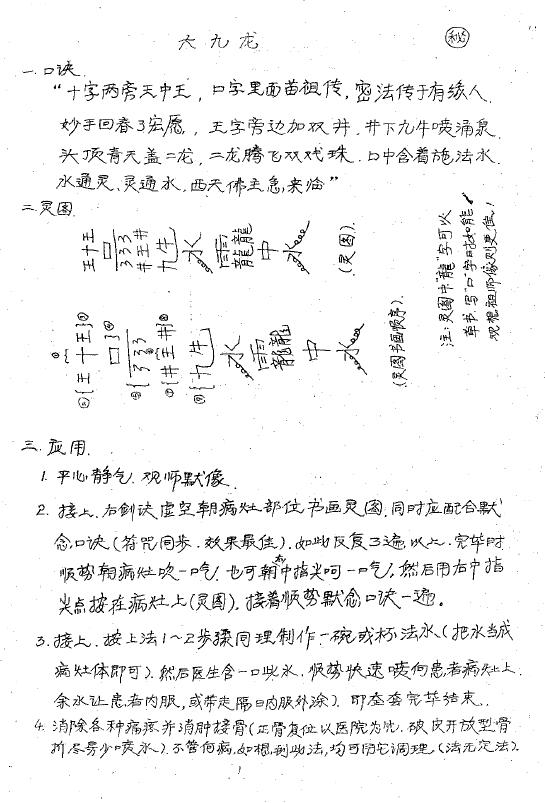 六九龙
秘
一.口诀.
“十字两旁天中王，口字里面苗祖传，密法传于有缘人.
妙手回春3宏愿，王字旁边加双井.井下九牛喷涌泉.
头顶青天盖二龙，二龙腾飞双戏珠.口中含着施法水.
水通灵.灵通水，西天佛主急来临”
二.灵图.
王十王
口
333
井王井
九牛
水
雨龍龍
中
水
(灵图).
注:灵图中“龍”字可以
草书.写“口”字时如能
观想祖师像则更佳!
①
②{王十王}③
口}④
⑤{333
⑥
⑦{井王井}⑧
⑨{九牛
水
雨龍龍
中
水
(灵图书画顺序).
三.应用.
1.平心静气.观师默像.
2.接上.右剑诀虚空朝病灶部位书画灵图.同时应配合默
念口诀(符咒同步.效果最佳).如此反复3遍以上.完毕时
顺势朝病灶吹一口气.也可朝右中指尖呵一口气,然后用右中指
尖点按在病灶上(灵图).接着顺势默念口诀一遍。
3.接上.按上法1～2步骤同理制作一碗或杯法水(把水当成
病灶体即可).然后医生含一口此水.顺势快速喷向患者病灶上.
余水让患者内服,或带走隔日内服外涂).即套套完毕结束.
4.消除各种痛疼并消肿接骨(正骨复位以医院为先.破皮开放型骨
折尽量少喷水).不管何病,如想到此法,均可用它调理.(法无定法).
1